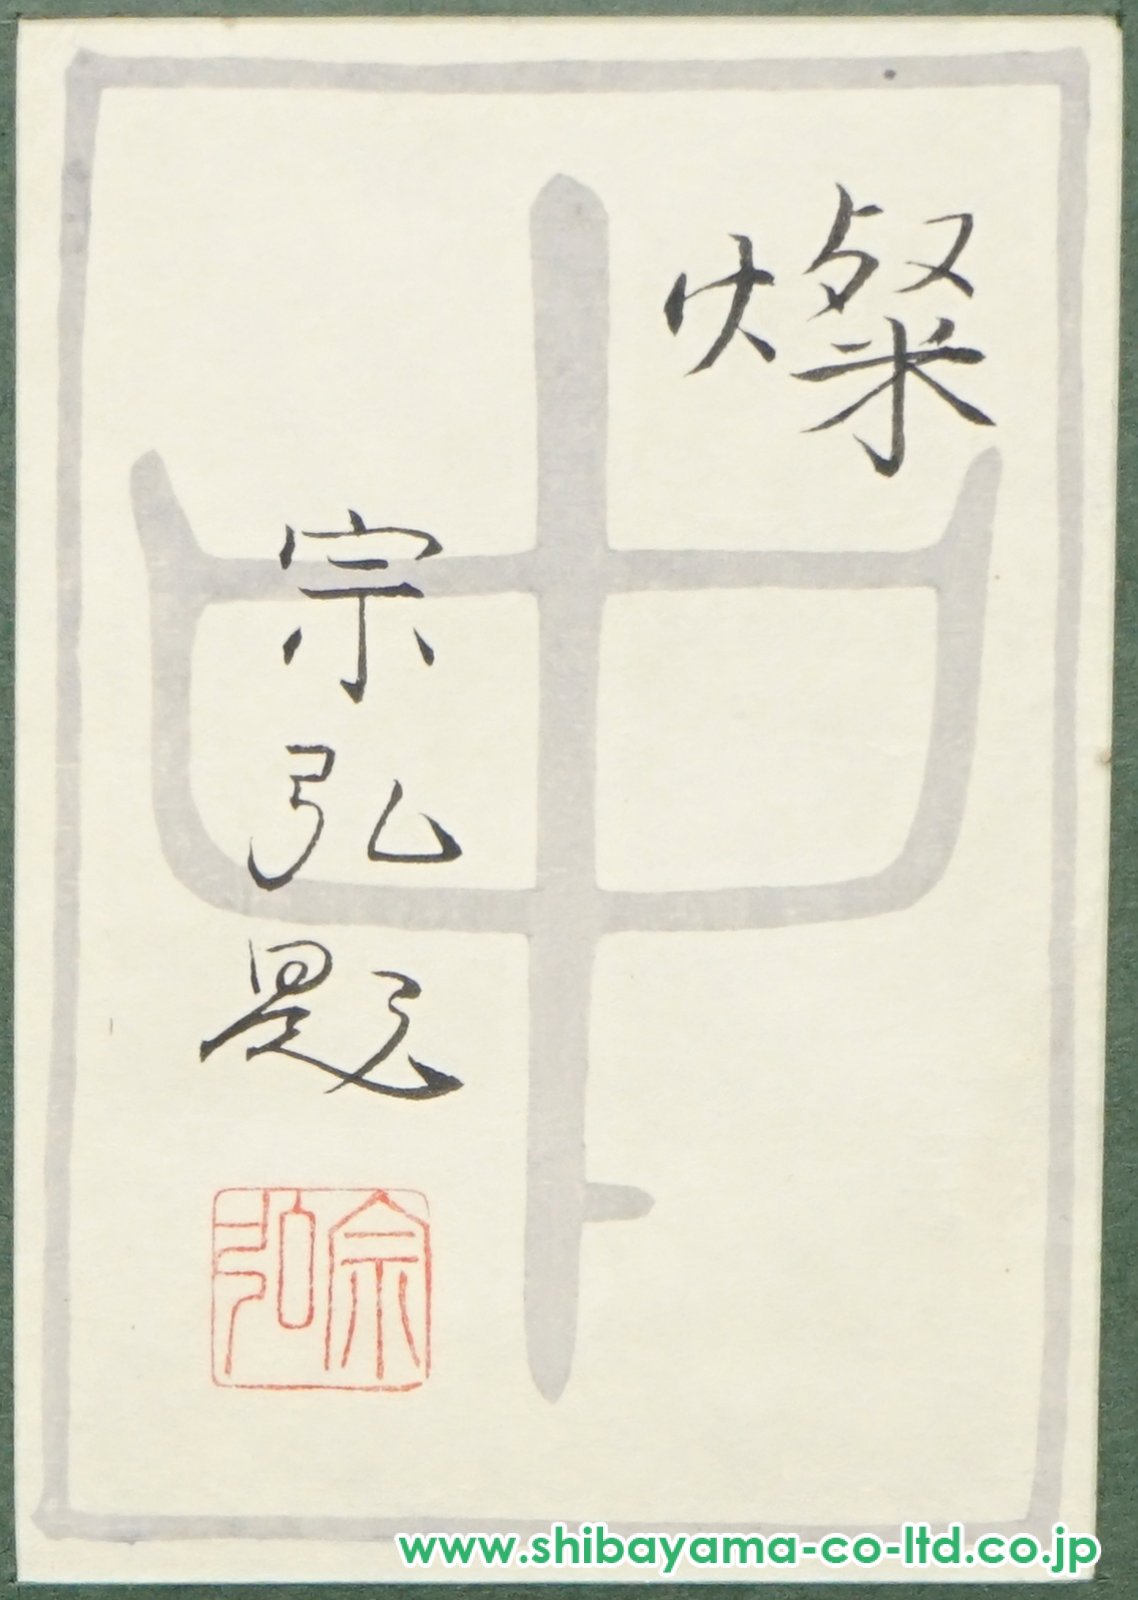 燦
宗弘題
宗弘
www.shibayama-co-ltd.co.jp